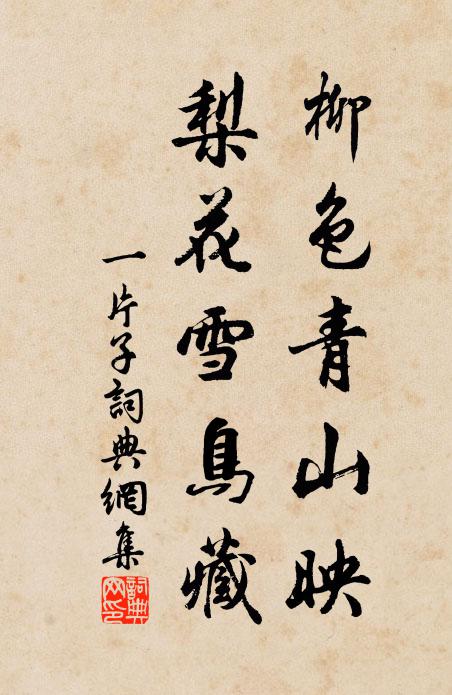 柳色青山映
梨花雪鳥藏
一片子詞典網集
詞典
网印